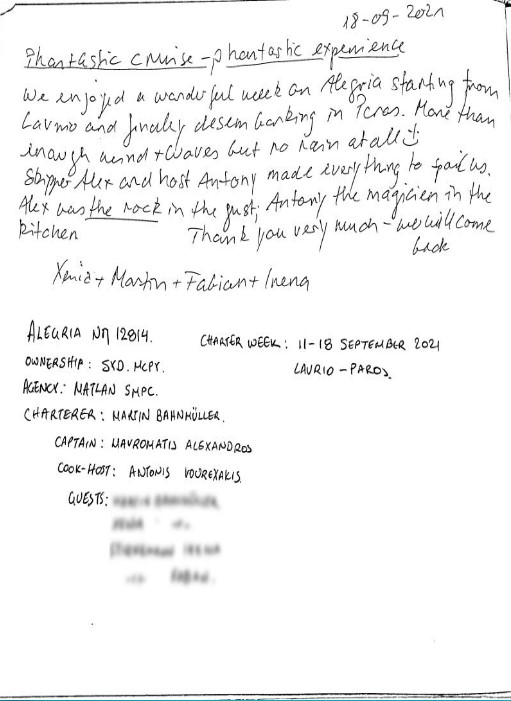 18-09-2021
Phantastic cruise - phantastic experience
We enjoyed a wonderful week on Alegria starting from
Lavrio and finaley desembarking in Paros. More than
enough wind + waves but no rain at all :)
Skipper Alex and host Antony made everything to pail us.
Alex was the rock in the gust; Antony the magicien in the
kitchen Thank you very much - we will come
back
Xenia + Martin + Fabian + Irena
ALEGRIA NΠ 12814. CHARTER WEEK: 11-18 SEPTEMBER 2021
OWNERSHIP: SYD. MCPY. LAVRIO - PAROS.
AGENCY: NATLAN SMPC.
CHARTERER: MARTIN BAHNMÜLLER.
CAPTAIN: MAVROMATIS ALEXANDROS
COOK-HOST: ANTONIS VOUREXAKIS
GUESTS: